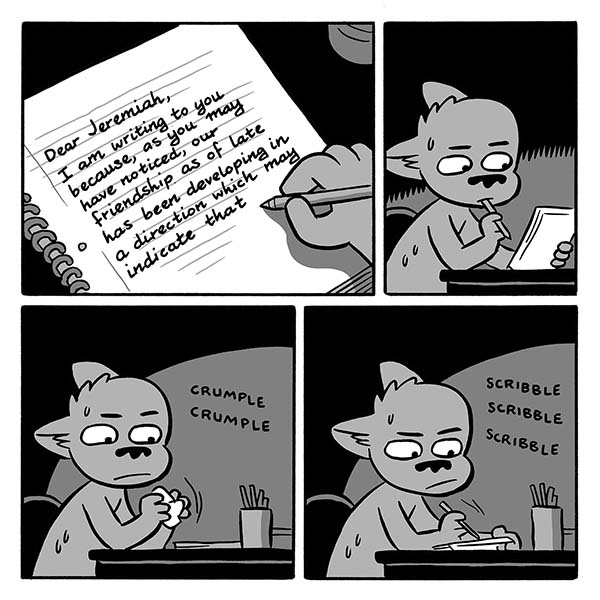 Dear Jeremiah,
I am writing to you
because, as you may
have noticed, our
friendship as of late
has been developing in
a direction which may
indicate that
CRUMPLE
CRUMPLE
SCRIBBLE
SCRIBBLE
SCRIBBLE